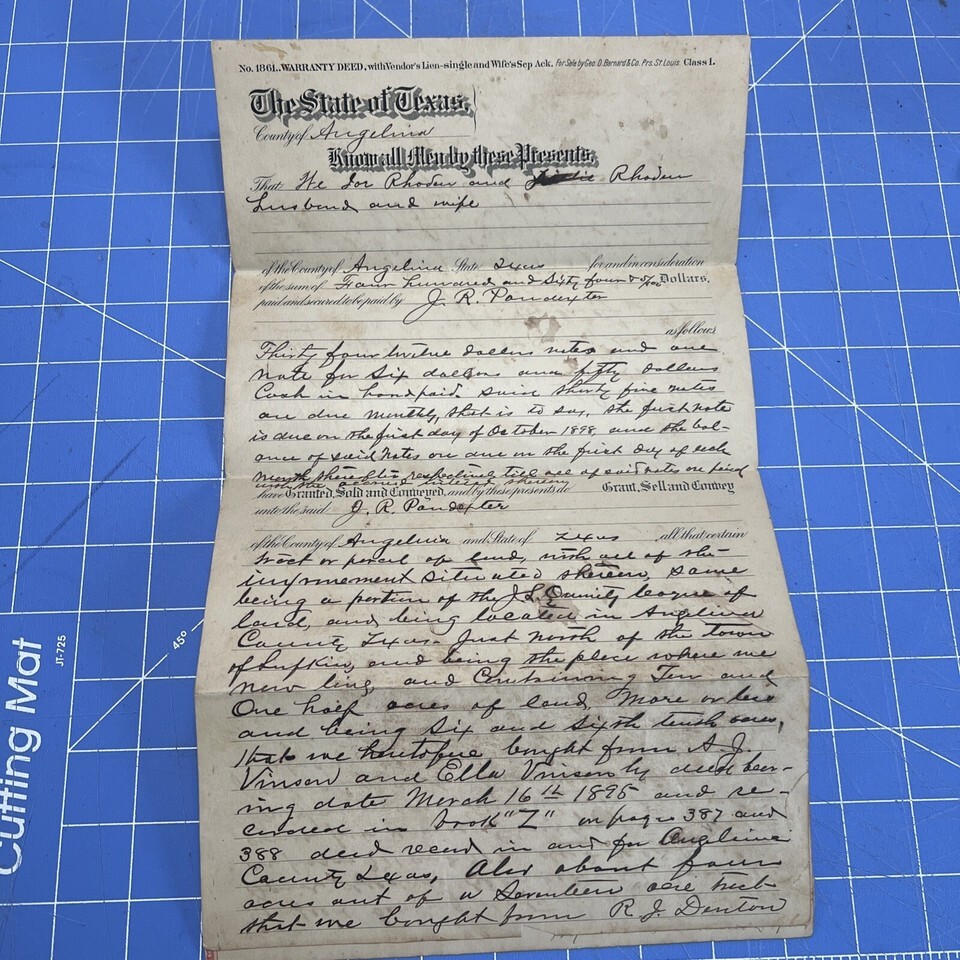 No. 1861. WARRANTY DEED, with Vendor's Lien-single and Wife's Sep Ack. For Sale by Geo. D. Barnard & Co. Prs. St. Louis. Class 1.
The State of Texas,
County of Angelina
Know all Men by these Presents,
That We Rhoden and Rhoden
husband and wife
of the County of Angelina State Texas for and in consideration
of the sum of Four hundred and Sixty four & 0/100 Dollars,
paid and secured to be paid by J. R. Poindexter
as follows
Thirty four twelve dollars notes and one
note for Six dollars and fifty dollars
Cash in hand paid. Said thirty five notes
are due monthly, that is to say, the first note
is due on the first day of October 1898, and the bal-
ance of said notes are due on the first day of each
month thereafter respectively till all of said notes are paid
interest thereon
have Granted, Sold and Conveyed, and by these presents do Grant, Sell and Convey
unto the said J. R. Poindexter
of the County of Angelina and State of Texas all that certain
tract or parcel of land, with all of the
improvement situated thereon, same
being a portion of the J. L. Quinalty league of
land, and being located in Angelina
County Texas Just north of the town
of Lufkin, and being the place where we
now live, and Containing Ten and
One half acres of land, More or less
and being Six and Sixth tenth acres,
that we heretofore bought from A. J.
Vinson and Ella Vinson by deed bear-
ing date March 16th 1895 and re-
corded in book "Z" on pages 387 and
388 deed record in and for Angelina
County Texas, Also about four
acres out of a Seventeen acre tract
that we bought from R. J. Denton
Cutting Mat
JT-725
45°